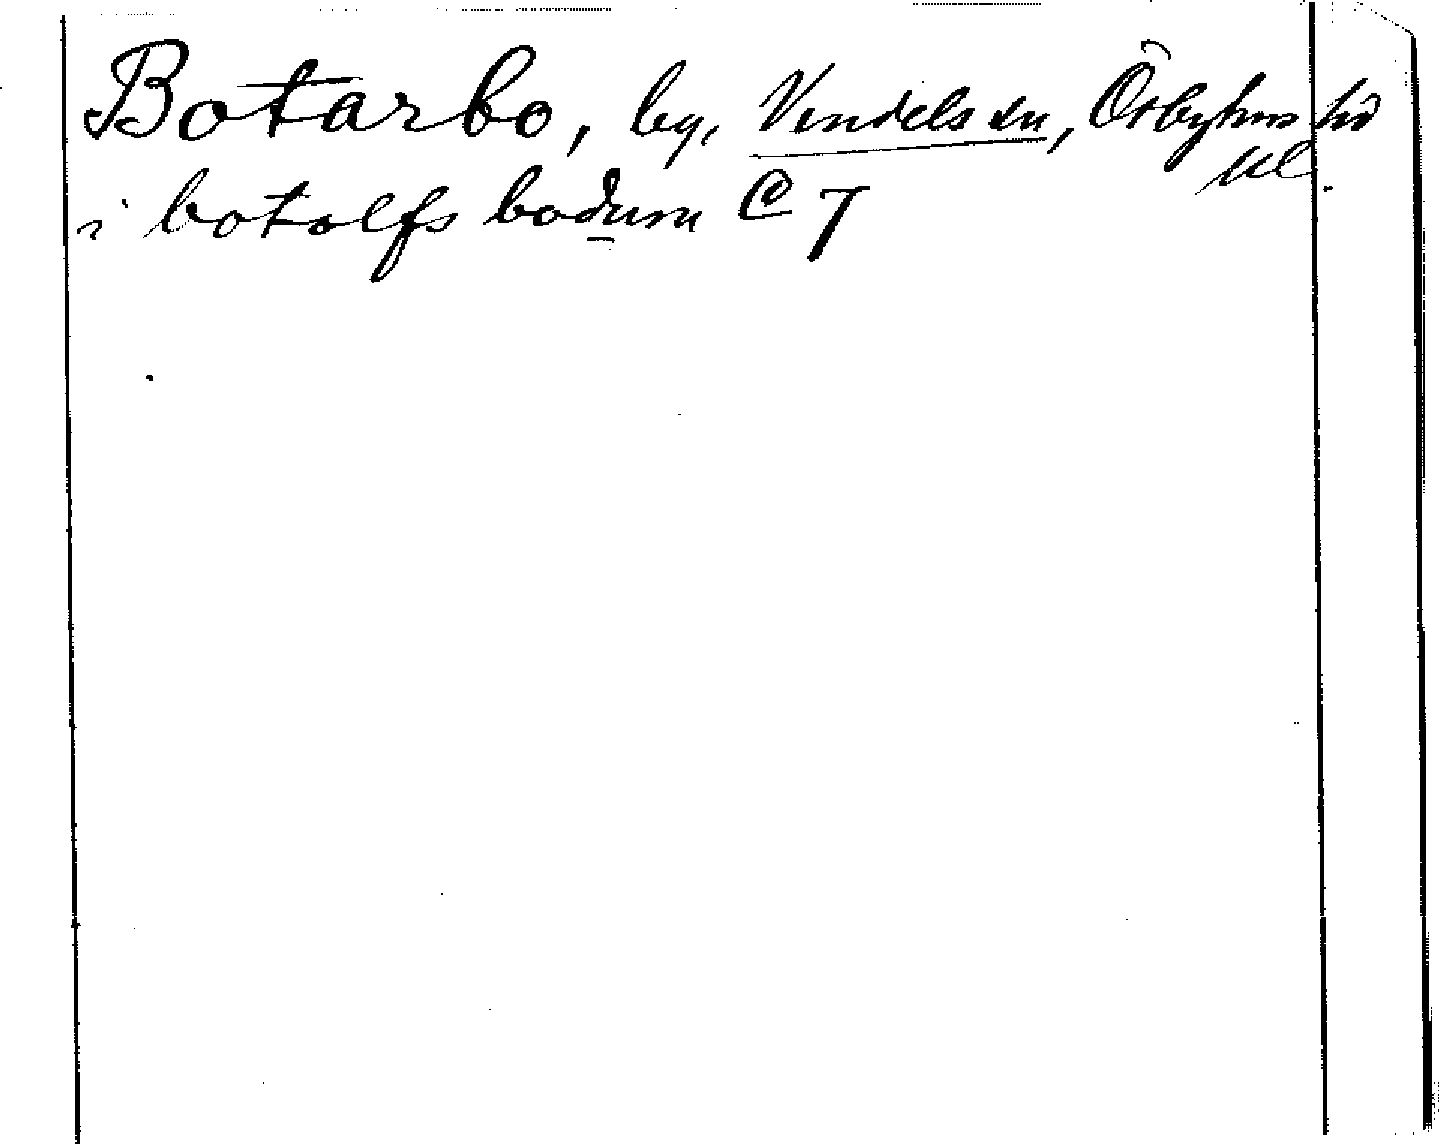 Botarbo, by, Vendels sn, Örbyhus hd
Upl.
i botolfs bodum C 7